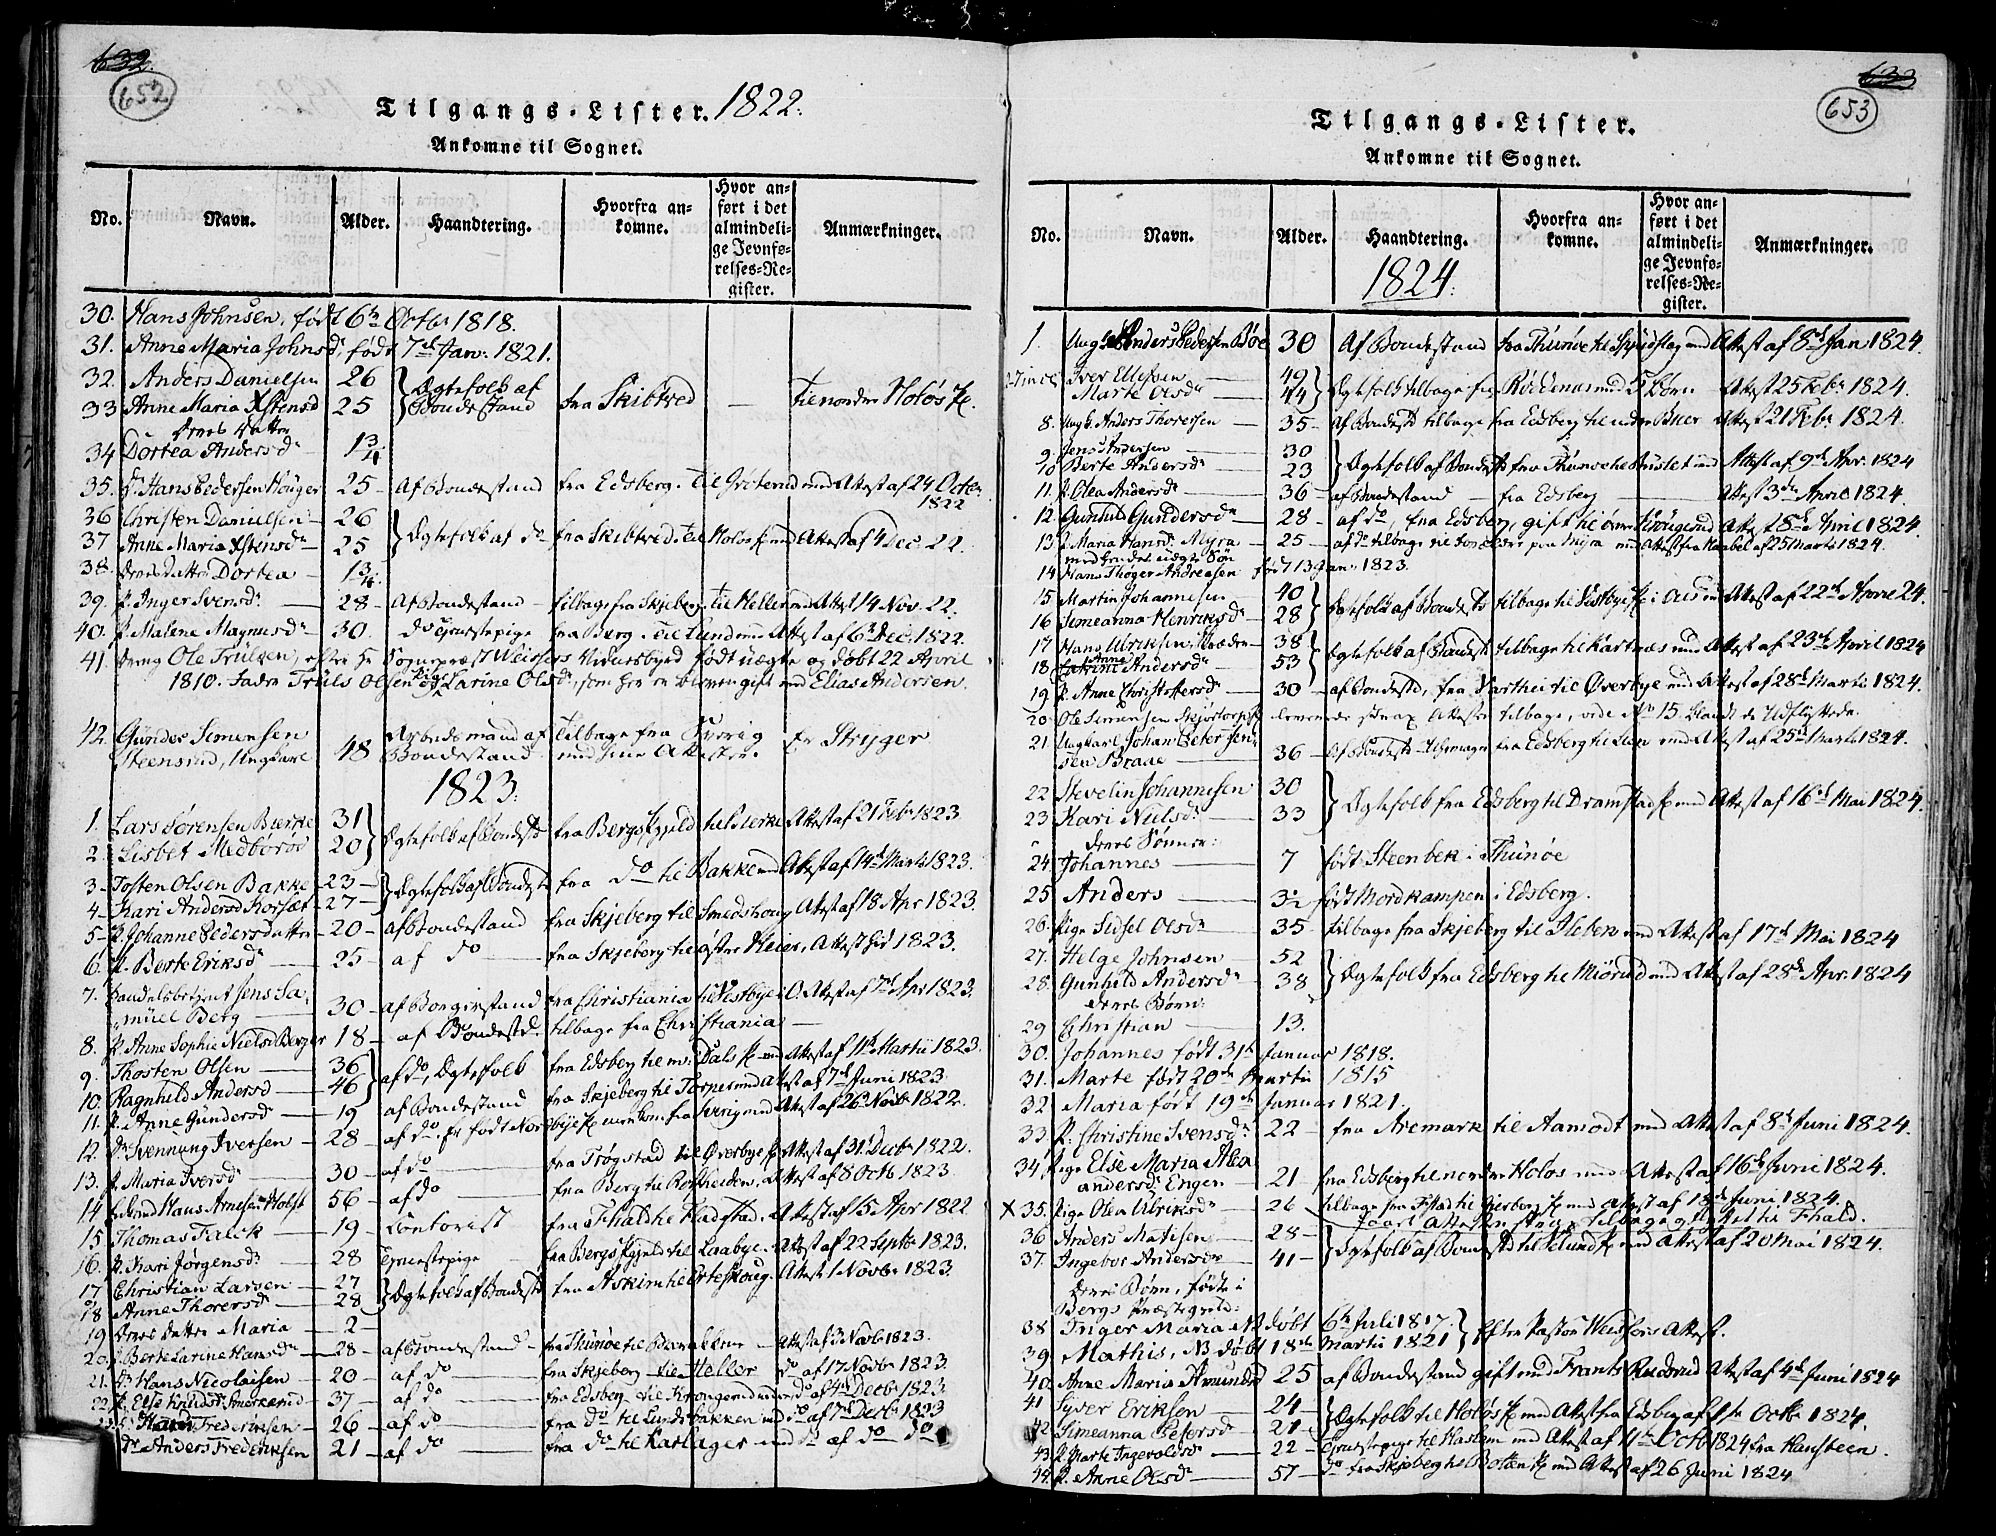 632.
652
Tilgangs-Lister. 1822.
Ankomne til Sognet.
No. Navn. Alder. Haandtering. Hvorfra ankomne. Hvor anført i det almindelige Jevnførelses-Register. Anmærkninger.
30. Hans Johnsen, født 6te Octbr 1818.
31. Anne Maria Johnsdr, født 7de Jan: 1821.
32. Anders Danielsen 26 Ægtefolk af
33 Anne Maria Xstensd 25 Bondestand fra Skibtved — Til nordre Holøs
Deres Datter
34 Dortea Andersdr 1 3/4
35. Hans Pedersen Houger 25 Af Bondestand fra Edsberg. Til Grøterud med Attest af 24 Octbr
1822
36 Christen Danielsen 26
37 Anne Maria Xstensdr 25 Ægtefolk af do fra Skibtved. Til Holøs med Attest af 4 Dec. 22.
38. Deres datter Dortea 1 3/4
39. P. Inger Svensdr 28 Af Bondestand tilbage fra Skjeberg. Til Heller med Attest 14 Nov. 22.
40. P. Malene Magnusdr 30. do Tjenestepige fra Berg. Til Lund med Attest af 6te Dec. 1822.
41. Dreng Ole Trulsen, efter Hr Sogneprest Weissers Vidnesbyrd født uægte og døbt 22 April
1810. Fader Truls Olsen og Pige Karine Olsdr, som her er bleven gift med Elias Andersen.
42. Gunder Simensen Arbeidsmand af Tilbage fra Sverig
Steensrud, Ungkarl 48 Bondestand med sine Attester. Er Stryger
1823.
1. Lars Sørensen Bierke 31
2. Lisbet Medboroe 20 Ægtefolk af Bondestd fra Bergs Gjeld til Bierke Attest af 21 Febr 1823
3 Tosten Olsen Bakke 23 Ægtefolk af Bondestd fra do til Bakke med Attest af 14de Marts 1823.
4 Kari Andersd Korsæt 27
5 P. Johanne Pedersdatter 20 af Bondestand fra Skjeberg til Smedshoug Attest af 18 Apr 1823.
6. P. Berte Eriksdr 25 af do fra Skjeberg til østre Heier, Attest 1823.
7. Handelsbetjent Jens Sa-
muel Berg 30 af Borgerstand fra Christiania til Vestbye i O. Attest af 7de Apr 1823.
8. P. Anne Sophie Nielsd Berger 18 af Bondestd. tilbage fra Christiania
9. Thosten Olsen 36 af do, Ægtefolk fra Edsberg til m. Dals med Attest af 11te Martii 1823.
10. Ragnhild Andersd 46
11. P. Anne Gundersd 19 af Bondestand fra Skjeberg til Tornes med Attest af 7de Juni 1823.
12. Dr Svennung Iversen 28 af do. er født Norbye men kom fra Sverig med Attest af 26 Novb 1822.
13. P. Maria Iversdr 30 af do fra Trøgstad til Øverbye Attest af 31 Decb 1822.
14 Hans Arnesen Holst 56 af do fra Berg til Rostheiden, Attest af 8 Octb 1823
15 Thomas Falck 19 Contorist fra Fhald til Fladstad. Attest af 15 Apr 1822
16. P. Kari Jørgensdr 28 Tjenestepige fra Bergs Gjeld til Laabye. Attest af 22 Septbr 1823.
17 Christian Larsen 27 Ægtefolk af Bondestd fra Askim til Erteskoug. Attest 1 Novbr 1823.
18 Anne Thorersdr 28
19 Deres datter Maria 2
20. P. Berte Larine Hansdr 28 af Bondestand fra Thunøe til Attest af 3 Novb 1823.
21. Dr Hans Nicolaisen 20 af do fra Skjeberg til Heller do af 17 Novbr 1823.
22. P. Else Knudsd Smerkerud 37 af do fra Edsberg til Krongerud do af 4de Decbr 1823.
Frederiksen 26 af do fra do til Lundsbakken med do af 7de Decbr 1823
Dr Anders Frederiksen 21 af do fra do til Karlager med do af do do
633
653
Tilgangs-Lister.
Ankomne til Sognet.
No. Navn. Alder. Haandtering. Hvorfra ankomne. Hvor anført i det almindelige Jevnførelses-Register. Anmærkninger.
1824.
1. Ungk. Anders Pedersen Bøe 30 Af Bondestand fra Thunøe til Spydslag med Attest af 8de Jan 1824.
Iver Ellefsen 49
Marte Olsdr 44 Ægtefolk tilbage fra Røddenes med 5 Børn Attest 25 Febr 1824.
8. Ungk. Anders Thorersen 35 af Bondestd tilbage fra Edsberg til Attest 21 Febr 1824.
9 Jens Andersen 30
10 Berte Andersdr 23 Ægtefolk af Bondestd fra Thunøe til med Attest af 9de Apr. 1824
11. P. Olea Andersdr 36 af Bondestand fra Edsberg Attest 3die April 1824.
12. Gunhil Gundersdr 28 af do, fra Edsberg, gift til Attest 8de April 1824.
13 P. Maria Hansdr. Myra 25 af do tilbage til forældre paa Myra med Attest fra Haabel af 25 Marts 1824.
med hendes uægte Søn
14 Hans Thøger Andreasen født 13 Jan. 1823.
15 Martin Johannesen 40
16 Simeanna Henriksdr 28 Ægtefolk af Bondestd tilbage til Vestbye i Aas med Attest af 22de April 24.
17 Hans Ulriksen, 38
18 Anne Andersdr 53 Ægtefolk af Bondestd tilbage til Kartnæs med Attest af 23de April 1824
19 P. Anne Christophersdr 30 af Bondestd, fra Varthei til Øverbye med Attest af 28de Martii 1824.
20 Ole Simensen leverede Attester tilbage, vide No 15. blandt de Udflyttede.
21 Ungkarl Johan Peter Jen-
sen Braae 36 Af Bondestd fra Edsberg til Lien med Attest af 25de Marts 1824.
22 Stevelin Johannesen 30
23 Kari Nielsdr 33 Ægtefolk fra Edsberg til Dramstad med Attest af 16de Mai 1824.
deres Sønner:
24 Johannes 7 født Steenbek i Thunøe
25 Anders 3 1/2 født Mordkampen i Edsberg.
26. Pige Sidsel Olsdr 35 tilbage fra Skjeberg til Ileben med Attest af 17de Mai 1824
27. Helge Johnsen 52
28. Gunhild Andersdr 38 Ægtefolk fra Edsberg til Miørud med Attest af 28de Apr. 1824
deres Børn:
29 Christian 13.
30. Johannes født 31te Januar 1818.
31. Marte født 20de Martii 1815
32 Maria født 19de Januar 1821.
33. P. Christine Svensdr 22 fra Aremark til Aamodt med Attest af 8de Juni 1824.
34. Pige Else Maria Alea
Andersdr Engen 21 fra Edsberg til nordre Holøs med Attest af 16de Juni 1824.
X 35. Pige Olea Ulriksdr 26 tilbage fra Fhald til Gierborg med Attest af 18de Juni 1824.
faaet Attesten strax tilbage og flyttet til Fhald.
36 Anders Matisen 28
37. Ingebor Andersdr 41 Ægtefolk af Bondestd til med Attest af 20 Mai 1824.
deres Børn, fødte i
Bergs Præstegield:
38 Inger Maria NB døbt 6te Juli 1817
39. Mathis, NB døbt 18de Martii 1821 efter Pastor Weissers Attest.
40. Anne Maria Amundsd 25 af Bondestand gift med Frants Ruderud Attest af 4de Juni 1824
41 Syver Eriksen 24
42 Simeanna Pedersdr 21 Ægtefolk til Holøs med Attest fra Edsberg af 1ste Octbr 1824.
43 P. Marte Ingevoldsdr 22 Tjenestepige til Haslem med Attest af 11te Octb 1824 fra Hansteen.
44. P. Anne Olsdr 57 do fra Skjeberg til Botten med Attest af 26 Juni 1824